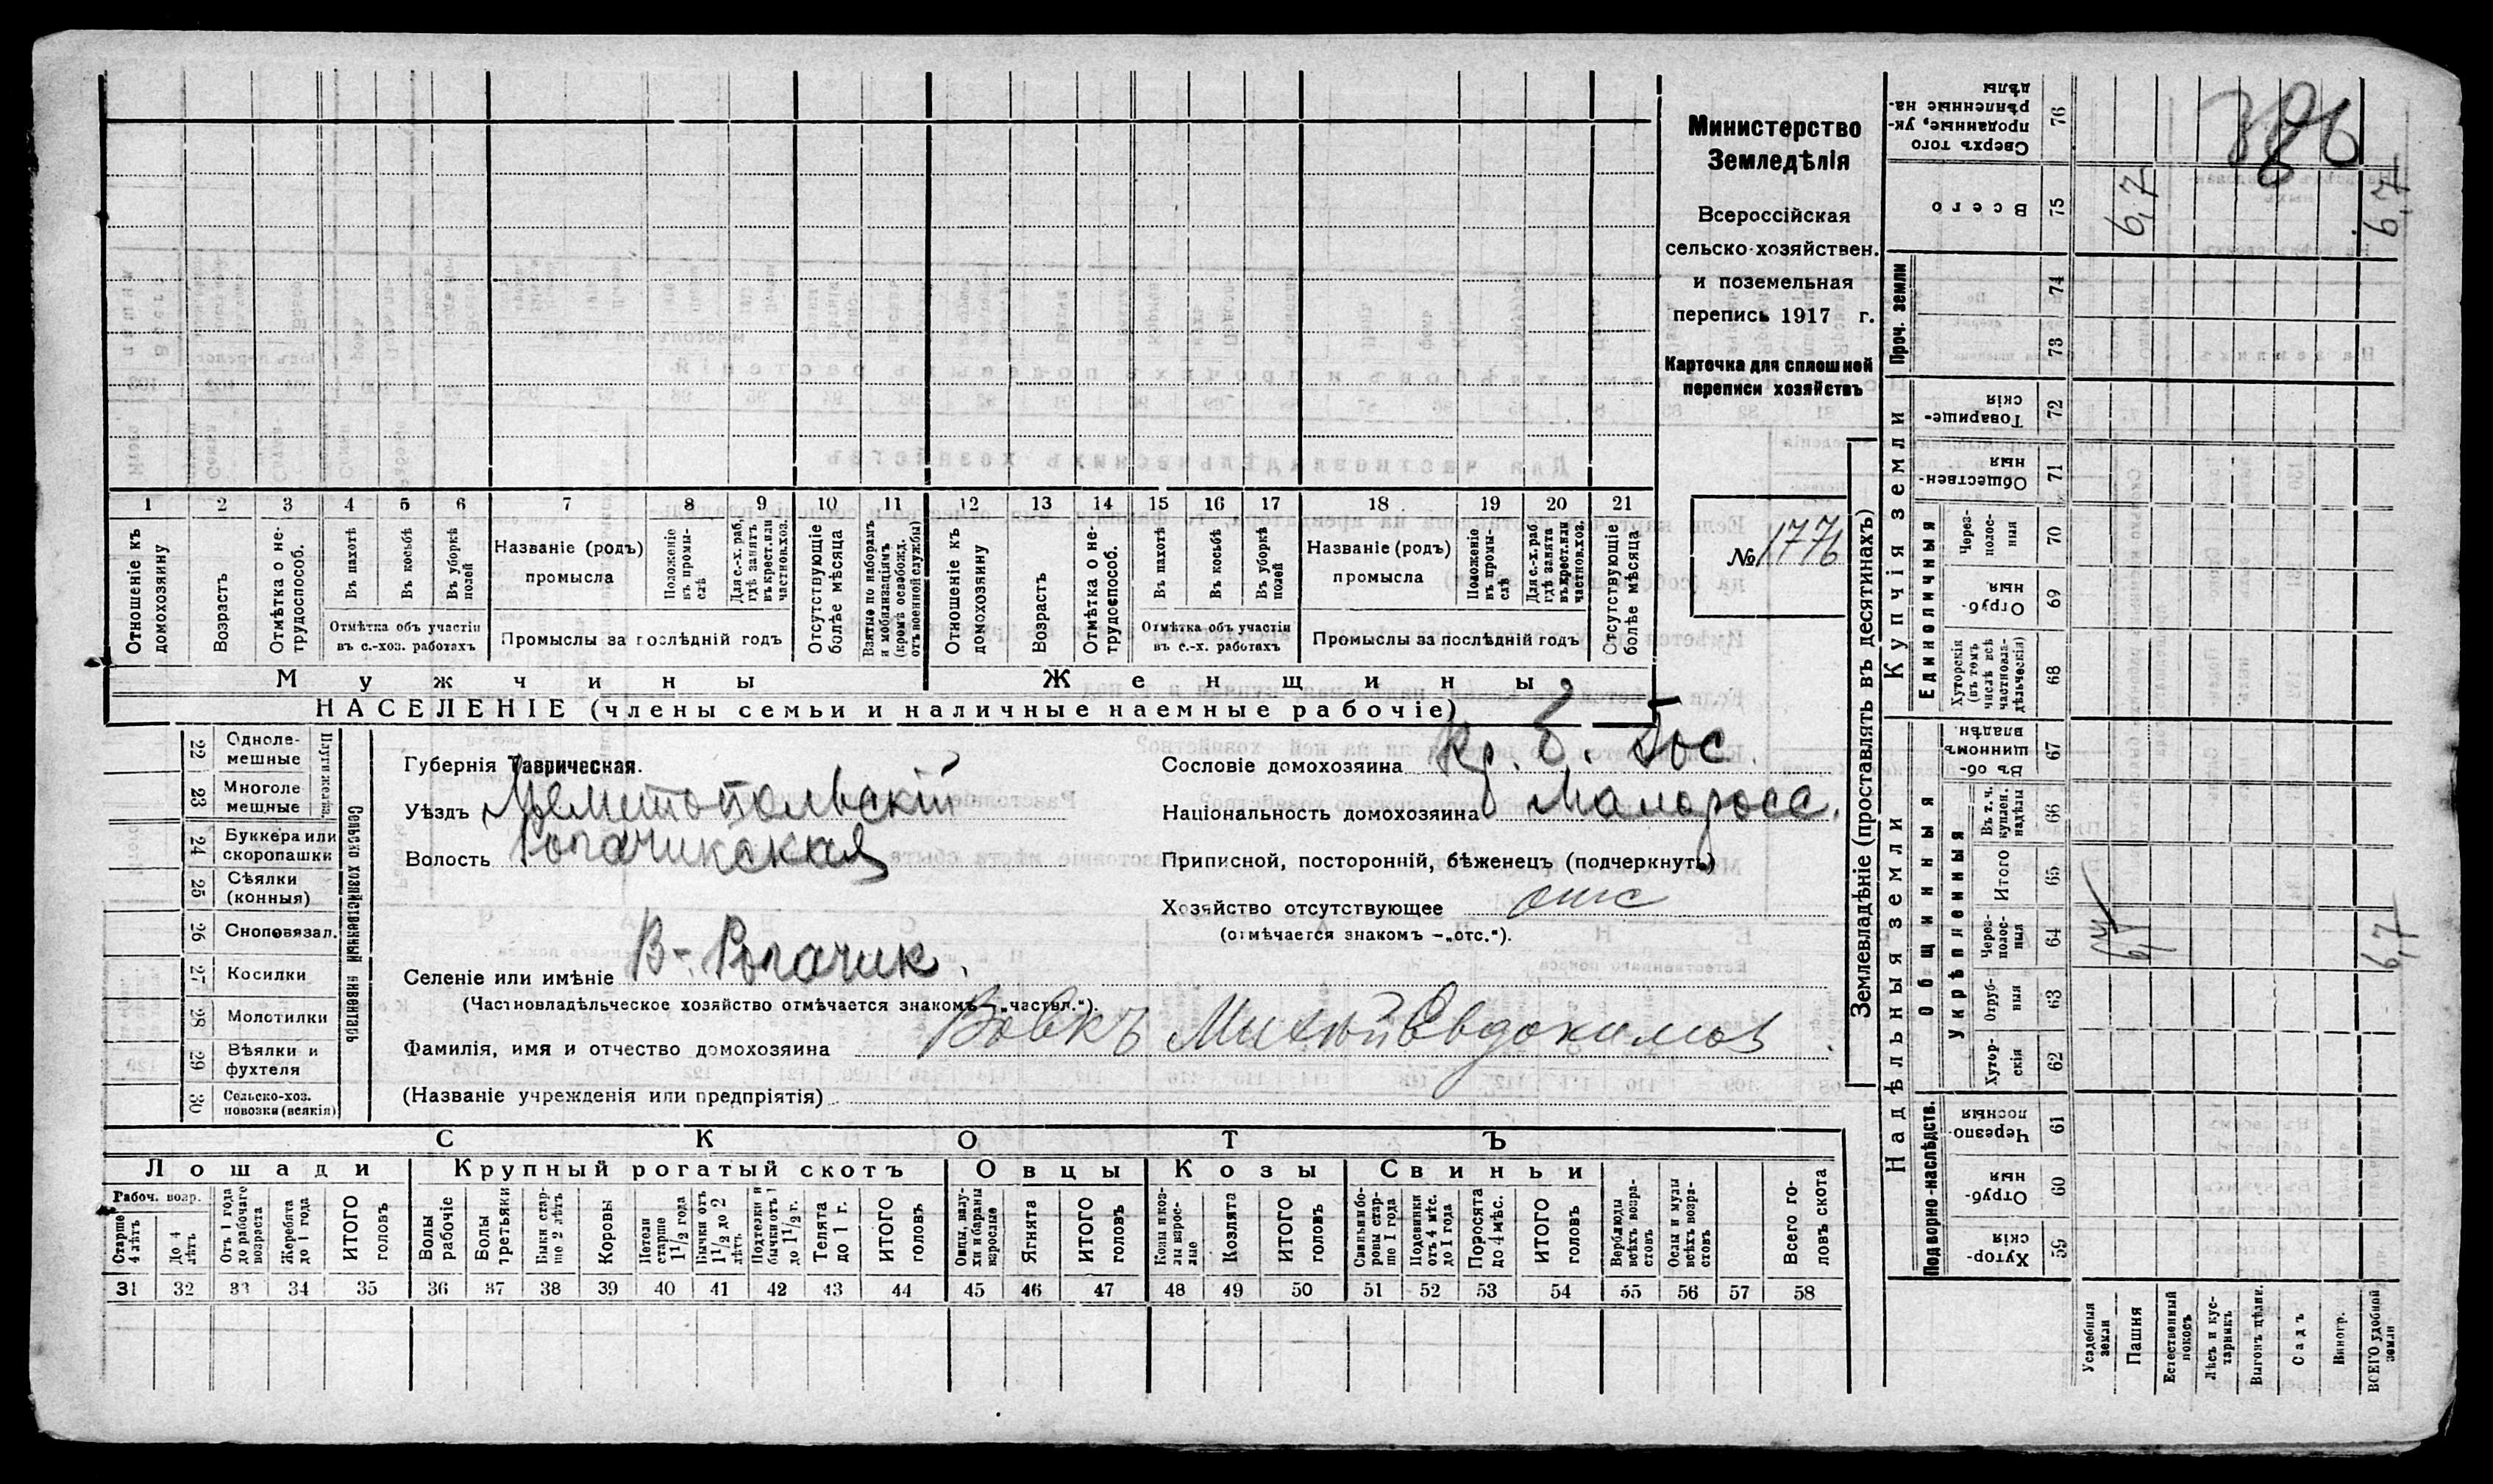 Министерство
Земледѣлія
Всероссійская
сельско-хозяйствен.
и поземельная
перепись 1917 г.
Карточка для сплошной
переписи хозяйствъ
№ 1776
1 2 3 4 5 6 7 8 9 10 11 12 13 14 15 16 17 18 19 20 21
Отношеніе къ домохозяину
Возрастъ
Отмѣтка о нетрудоспособ.
Въ пахотѣ
Въ косьбѣ
Въ уборкѣ полей
Отмѣтка объ участіи
въ с.-хоз. работахъ
Названіе (родъ)
промысла
Положеніе въ промыслѣ
Для с.-х. раб. гдѣ занятъ въ крест. или частнов. хоз.
Промыслы за послѣдній годъ
Отсутствующіе болѣе мѣсяца
Взятые по наборамъ и мобилизаціямъ (кромѣ освобожд. отъ военной службы)
Отношеніе къ домохозяину
Возрастъ
Отмѣтка о нетрудоспособ.
Въ пахотѣ
Въ косьбѣ
Въ уборкѣ полей
Отмѣтка объ участіи
въ с.-х. работахъ
Названіе (родъ)
промысла
Положеніе въ промыслѣ
Для с.-х. раб. гдѣ занята въ крест. или частнов. хоз.
Промыслы за послѣдній годъ
Отсутствующіе болѣе мѣсяца
Мужчины Женщины
НАСЕЛЕНІЕ (члены семьи и наличные наемные рабочіе)
22 Одноле-
мешные
23 Многоле
мешные
24 Буккера или
скоропашки
25 Сѣялки
(конныя)
26 Сноповязал.
27 Косилки
28 Молотилки
29 Вѣялки и
фухтеля
30 Сельско-хоз.
повозки (всякія)
Сельско хозяйственный инвентарь
Губернія Таврическая.
Уѣздъ Мелитопольскій
Волость Рогачикская
Селеніе или имѣніе В-Рогачик.
(Частновладѣльческое хозяйство отмѣчается знакомъ –„частвл.“).
Фамилія, имя и отчество домохозяина Вовкъ Михей Евдокимов
(Названіе учрежденія или предпріятія)
Сословіе домохозяина Кр.
Національность домохозяина Малоросс.
Приписной, посторонній, бѣженецъ (подчеркнуть)
Хозяйство отсутствующее отс
(отмѣчается знакомъ –„отс.“).
СКОТЪ
Лошади Крупный рогатый скотъ Овцы Козы Свиньи
Рабоч. возр.
Старше 4 лѣтъ
До 4 лѣтъ
Отъ 1 года до рабочаго возраста
Жеребята до 1 года
ИТОГО головъ
Волы рабочіе
Волы третьяки
Быки старше 2 лѣтъ
Коровы
Нетели старше 1 1/2 года
Бычки отъ 1 1/2 до 2 лѣтъ
Подтелки и бычки отъ 1 до 1 1/2 г.
Телята до 1 г.
ИТОГО головъ
Овцы, валухи и бараны взрослые
Ягнята
ИТОГО головъ
Козы и козлы взрослые
Козлята
ИТОГО головъ
Свиньи и боровы старше 1 года
Подсвинки отъ 4 мѣс. до 1 года
Поросята до 4 мѣс.
ИТОГО головъ
Верблюды всѣхъ возрастовъ
Ослы и мулы всѣхъ возрастовъ
Всего головъ скота
31 32 33 34 35 36 37 38 39 40 41 42 43 44 45 46 47 48 49 50 51 52 53 54 55 56 57 58
Землевладѣніе (проставлять въ десятинахъ)
Купчія земли
Надѣльныя земли
Проч. земли
Единоличныя
Общинныя
Укрѣпленныя
Подворно-наслѣдств.
Сверхъ того проданные, укрѣпленные надѣлы 76
Всего 75 6,7 6,7
74
73
Товарищескія 72
Общественныя 71
Черезполосныя 70
Отрубныя 69
Хуторскія (въ томъ числѣ всѣ частновладѣльческія) 68
Въ общинномъ владѣн. 67
Въ т. ч. куплен. надѣлы 66
Итого 65
Черезполосныя 64 6,7
Отрубныя 63
Хуторскія 62
Черезполосныя 61
Отрубныя 60
Хуторскія 59
Усадебныя земли
Пашня
Естественный покосъ
Лѣсъ и кустарникъ
Выгонъ цѣлин.
Садъ
Виногр.
ВСЕГО удобной земли